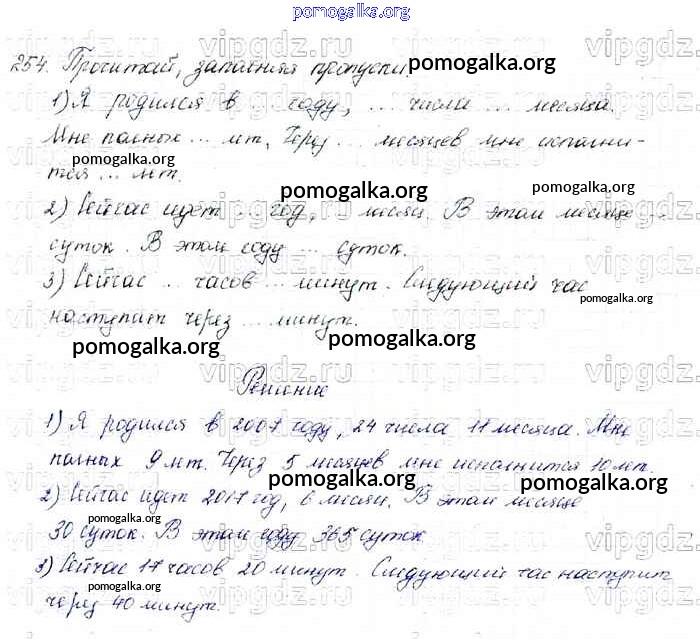 pomogalka.org
254. Прочитай, заполняя пропуски. pomogalka.org
1) Я родился в ... году, ... числа ... месяца.
Мне полных ... лет. Через ... месяцев мне исполни-
pomogalka.org
тся ... лет.
pomogalka.org pomogalka.org
2) Сейчас идет ... год, месяц. В этом месяце ...
суток. В этом году ... суток.
3) Сейчас ... часов ... минут. Следующий час
pomogalka.org
наступает через ... минут.
pomogalka.org pomogalka.org
Решение
1) Я родился в 2007 году, 24 числа 11 месяца. Мне
полных 9 лет. Через 5 месяцев мне исполнится 10 лет.
pomogalka.org pomogalka.org
2) Сейчас идет 2017 год, 6 месяц. В этом месяце
pomogalka.org
30 суток. В этом году 365 суток
3) Сейчас 17 часов 20 минут. Следующий час наступит
pomogalka.org pomogalka.org
через 40 минут.